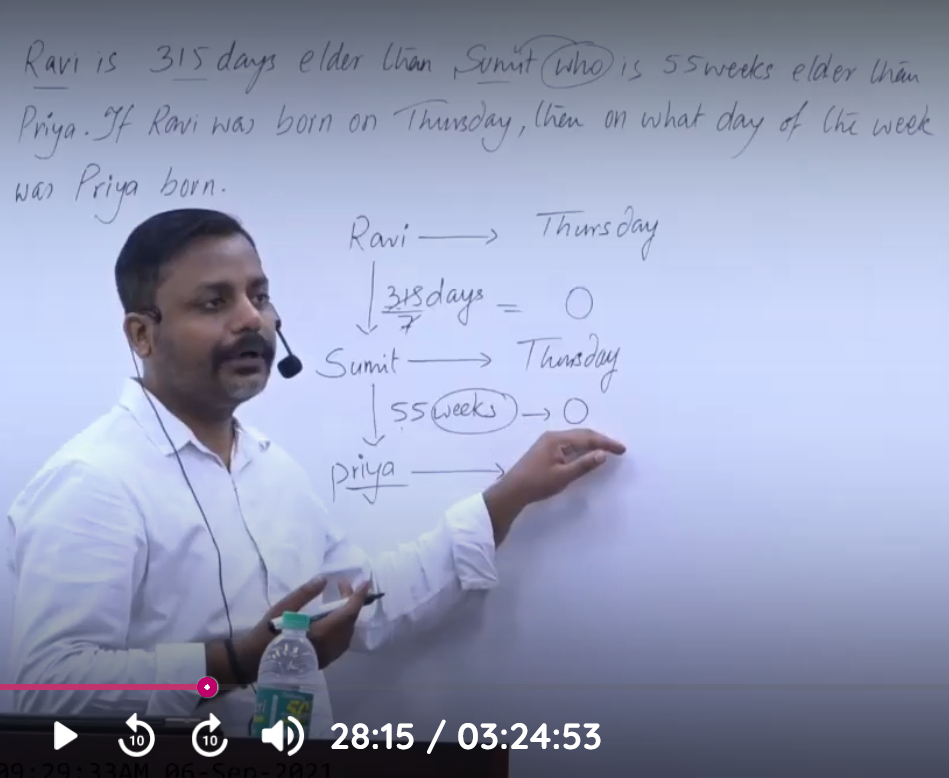 Ravi is 315 days elder than Sumit who is 55 weeks elder than
Priya. If Ravi was born on Thursday, then on what day of the week
was Priya born.
Ravi → Thursday
315 days = 0
7
Sumit → Thursday
55 weeks → 0
Priya →
10
10
28:15 / 03:24:53
09:29:33AM 06-Sep-2021